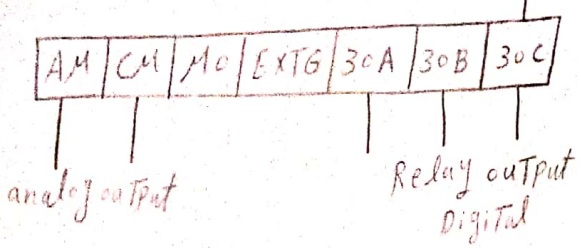 AM CM Mo EXTG 30A 30B 30C
analog ouTPut
Relay ouTPut
DigiTal